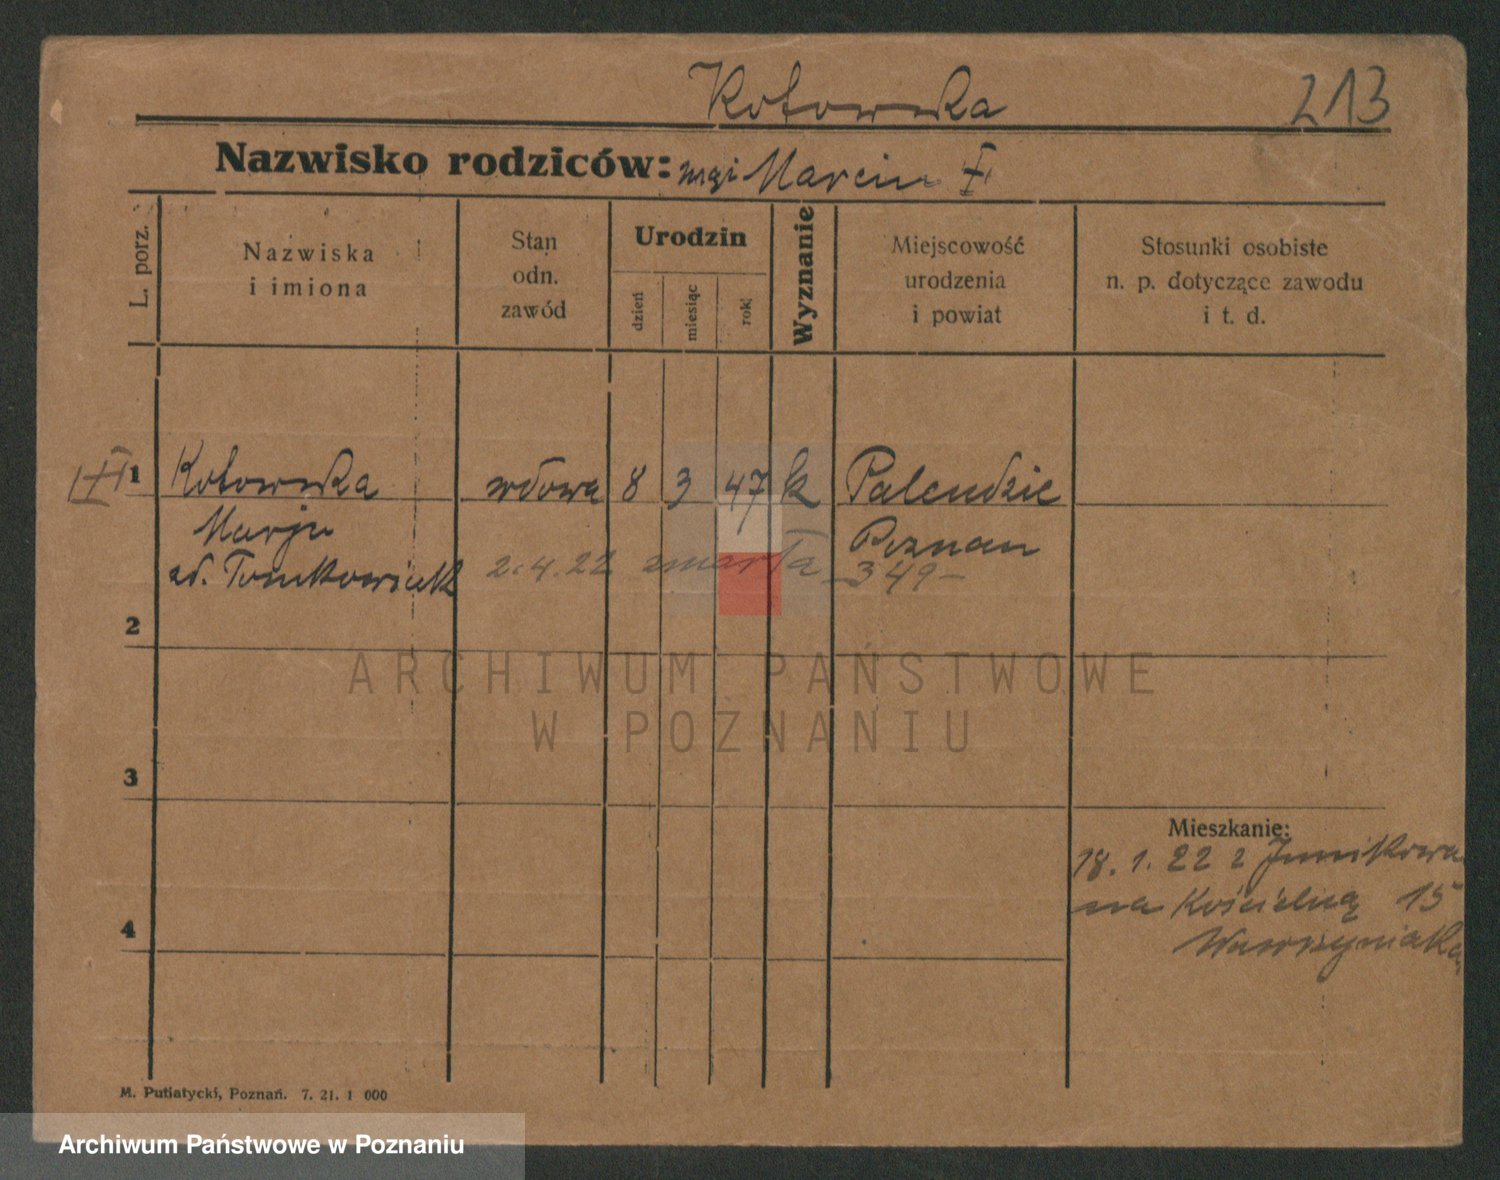 Kotowska 213
Nazwisko rodziców: mąż Marcin
L. porz.
Nazwiska
i imiona
Stan
odn.
zawód
Urodzin
dzień
miesiąc
rok
Wyznanie
Miejscowość
urodzenia
i powiat
Stosunki osobiste
n. p. dotyczące zawodu
i t. d.
1 Kotowska wdowa 8 3 47 k Palendzie
Marja Poznan
2.4.22 zmarła 349
2
ARCHIWUM PAŃSTWOWE
W POZNANIU
3
Mieszkanie:
18.1.22 z Junikowa
na Kościelną 15
4
Wawrzyniaka
M. Putiatycki, Poznań. 7. 21. 1 000
Archiwum Państwowe w Poznaniu